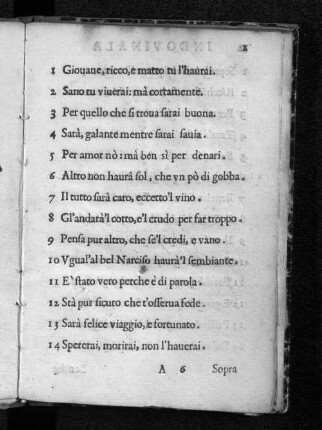 2
1 Giouane, ricco, e matto tu l'haurai.
2 Sano tu viuerai: mà cortamente.
3 Per quello che si troua sarai buona.
4 Sarà, galante mentre sarai sauia.
5 Per amor nò: mà ben sì per denari.
6 Altro non haurà sol, che vn pò di gobba.
7 Il tutto sarà caro, eccerto'l vino.
8 Gl'andarà'l cotto, e'l crudo per far troppo.
9 Pensa pur altro, che se'l credi, e vano.
10 Vgual'al bel Narciso haurà'l sembiante.
11 E' stato vero perche è di parola.
12 Stà pur sicuro che t'osserua fede.
13 Sarà felice viaggio, e fortunato.
14 Spererai, morirai, non l'hauerai.
A 6 Sopra